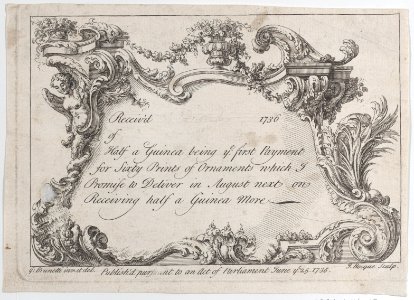 Receiv'd 1736
of
Half a Guinea being yͤ first Payment
for Sixty Prints of Ornaments which I
Promise to Deliver in August next on
Receiving half a Guinea More
G. Brunetti invt et del. Publish'd pursuant to an Act of Parliament June yͤ 25 1736. J. Rocque Sculp.